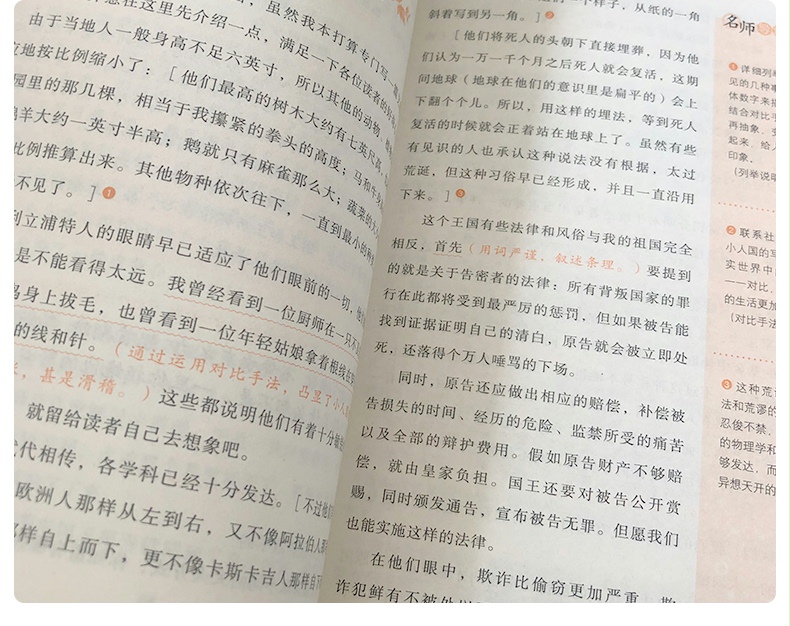 在这里先介绍一点，满足一下各位读者的好
由于当地人一般身高不足六英寸，所以其他的动物、
应地按比例缩小了：［他们最高的树木大约有七英尺高，
园里的那几棵，相当于我攥紧的拳头的高度；马和牛
羊大约一英寸半高；鹅就只有麻雀那么大；蔬菜的大
比例推算出来。其他物种依次往下，一直到最小的种
不见了。］❶
列立浦特人的眼睛早已适应了他们眼前的一切，他
是不能看得太远。我曾经看到一位厨师在一只不
鸟身上拔毛，也曾看到一位年轻姑娘拿着根线在
的线和针。（通过运用对比手法，凸显了小人
，甚是滑稽。）这些都说明他们有着十分敏
就留给读者自己去想象吧。
代代相传，各学科已经十分发达。［不过他们
欧洲人那样从左到右，又不像阿拉伯人那
那样自上而下，更不像卡斯卡吉人那样自下
样子，从纸的一角
斜着写到另一角。］❷
［他们将死人的头朝下直接埋葬，因为他
们认为一万一千个月之后死人就会复活，这期
间地球（地球在他们的意识里是扁平的）会上
下翻个个儿。所以，用这样的埋法，等到死人
复活的时候就会正着站在地球上了。虽然有些
有见识的人也承认这种说法没有根据，太过
荒诞，但这种习俗早已经形成，并且一直沿用
下来。］❸
这个王国有些法律和风俗与我的祖国完全
相反，首先（用词严谨，叙述条理。）要提到
的就是关于告密者的法律：所有背叛国家的罪
行在此都将受到最严厉的惩罚，但如果被告能
找到证据证明自己的清白，原告就会被立即处
死，还落得个万人唾骂的下场。
同时，原告还应做出相应的赔偿，补偿被
告损失的时间、经历的危险、监禁所受的痛苦
以及全部的辩护费用。假如原告财产不够赔
偿，就由皇家负担。国王还要对被告公开赏
赐，同时颁发通告，宣布被告无罪。但愿我们
也能实施这样的法律。
在他们眼中，欺诈比偷窃更加严重，欺
诈犯鲜有不被处以
名师
❶ 详细列举
见的几种事
体数字来描
结合对比手
再抽象，变
起来，给人
印象。
（列举说明
❷ 联系社
小人国的写
实世界中
——对比，
的生活更加
（对比手法
❸ 这种荒诞
法和荒谬的
忍俊不禁，
的物理学和
够发达，而
异想天开的